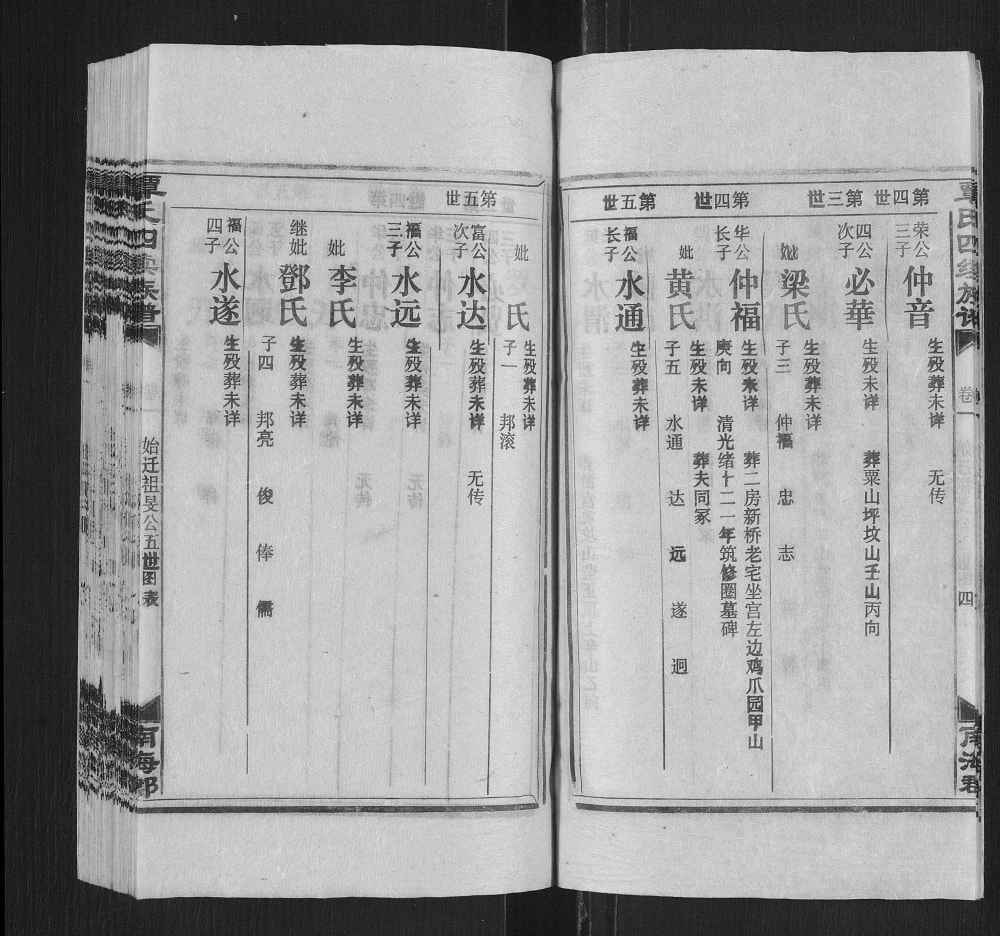 覃氏四续族谱
卷一
四
南海郡
第四世
荣公三子
仲音
生殁葬未详 无传
第三世
四公次子
必華
生殁未详 葬粟山坪坟山壬山丙向
妣
梁氏
生殁葬未详
子三 仲福 忠 志
第四世
华公长子
仲福
生殁未详 葬二房新桥老宅坐宫左边鸡爪园甲山
庚向 清光绪十二一年筑修圈墓碑
妣
黄氏
生殁未详 葬夫同冢
子五 水通 达 远 遂 迥
第五世
福公长子
水通
生殁葬未详
妣
氏
生殁葬未详
子一 邦滚
第五世
富公次子
水达
生殁葬未详 无传
福公三子
水远
生殁葬未详
妣
李氏
生殁葬未详
继妣
鄧氏
生殁葬未详
子四 邦亮 俊 俸 儒
福公四子
水遂
生殁葬未详
覃氏四续族谱
始迁祖旻公五世图表
南海郡